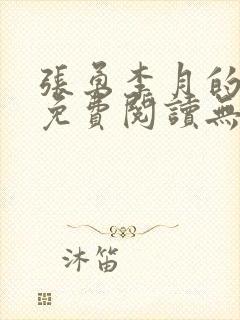 張勇李月的
免費閱讀無
沐笛